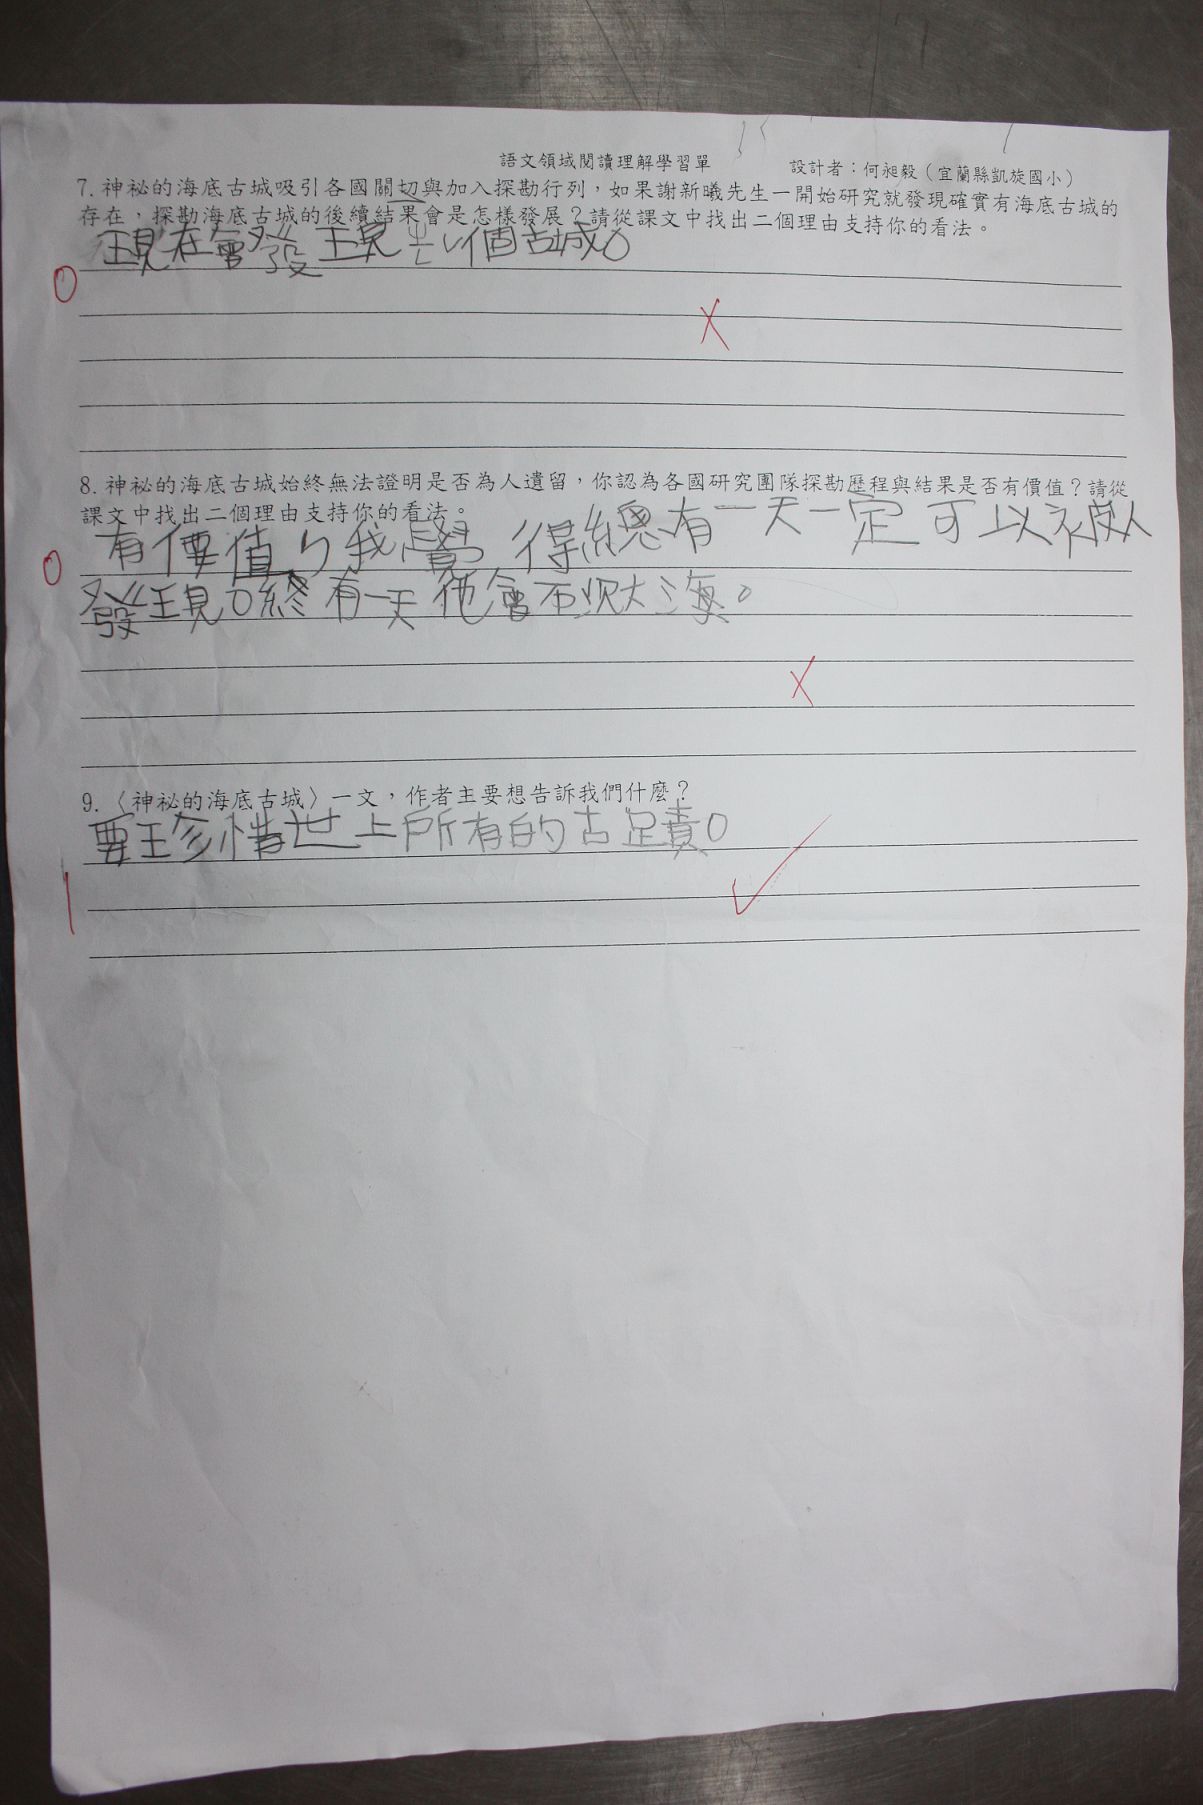 語文領域閱讀理解學習單 設計者：何昶毅（宜蘭縣凱旋國小）
7. 神祕的海底古城吸引各國關切與加入探勘行列，如果謝新曦先生一開始研究就發現確實有海底古城的
存在，探勘海底古城的後續結果會是怎樣發展？請從課文中找出二個理由支持你的看法。
現在會發現出個古城。
0
8. 神祕的海底古城始終無法證明是否為人遺留，你認為各國研究團隊探勘歷程與結果是否有價值？請從
課文中找出二個理由支持你的看法。
有價值，我覺得總有一天一定可以被人
0
發現。終有一天他會石沉大海。
9.〈神祕的海底古城〉一文，作者主要想告訴我們什麼？
要珍惜世上所有的古蹟。
1